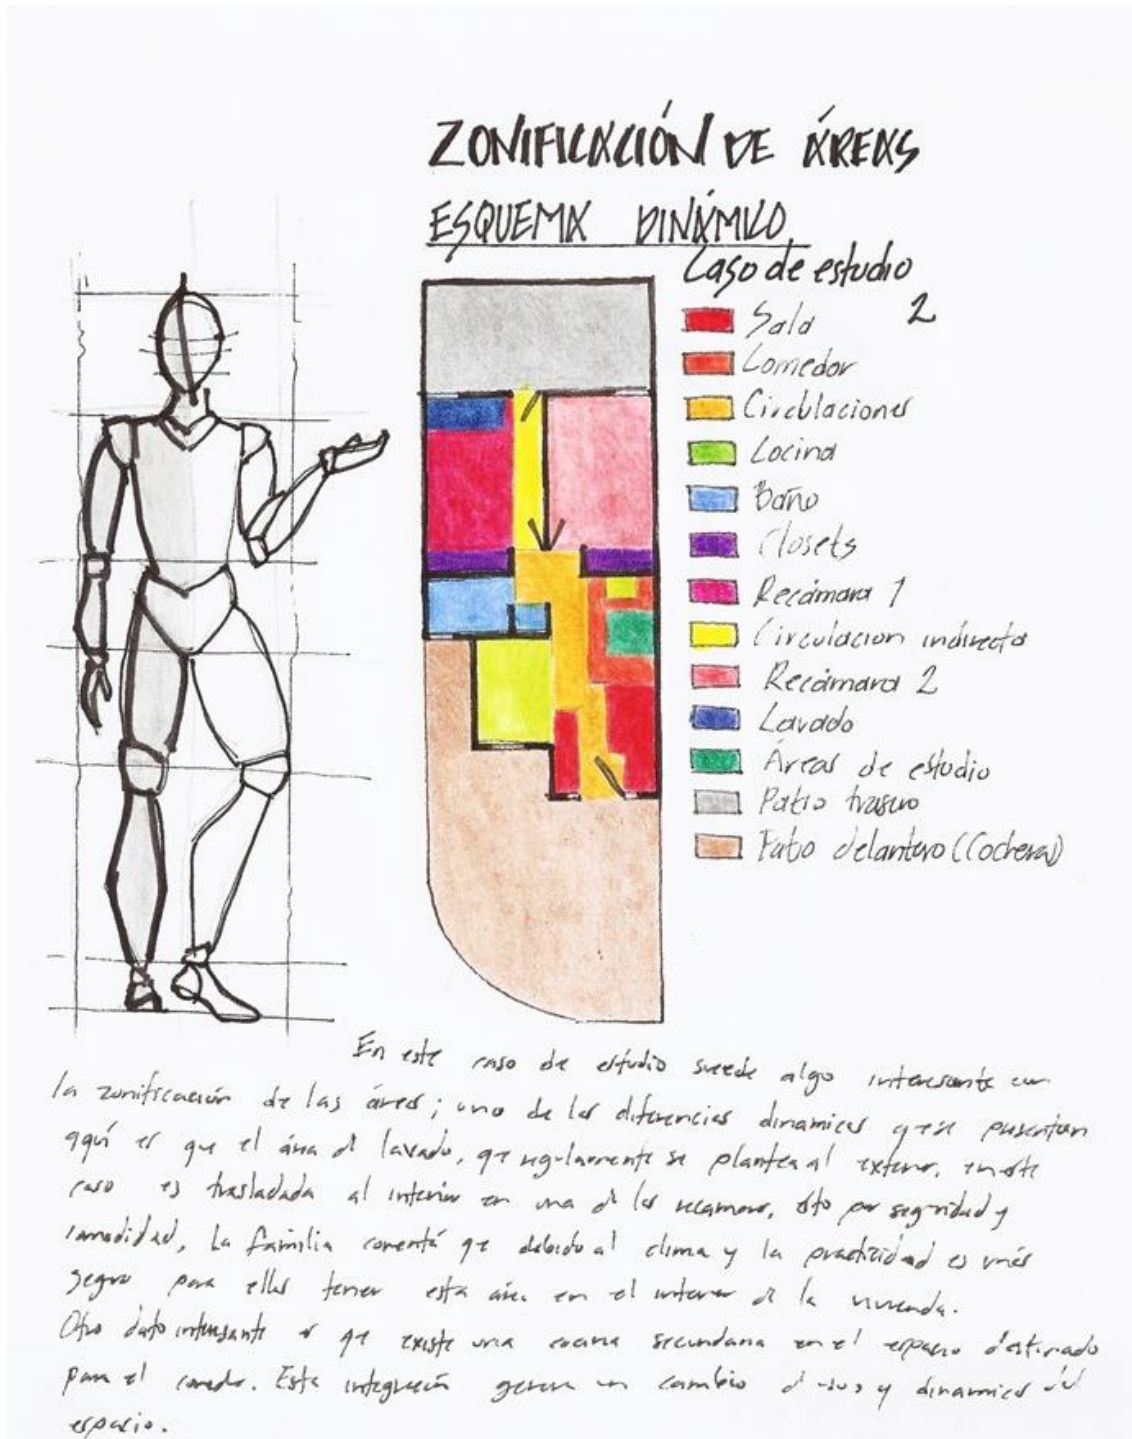 ZONIFICACIÓN DE ÁREAS
ESQUEMA DINÁMICO
Caso de estudio
2
Sala
Comedor
Circulaciones
Cocina
Baño
Closets
Recámara 1
Circulacion indirecta
Recámara 2
Lavado
Áreas de estudio
Patio trasero
Patio delantero (Cochera)
En este caso de estudio sucede algo interesante con
la zonificación de las áreas; una de las diferencias dinamicas que se presentan
aquí es que el área de lavado, que regularmente se plantea al exterior, en este
caso es trasladada al interior en una de las recamaras, esto por seguridad y
comodidad, La familia comentá que debido al clima y la practicidad es más
seguro para ellos tener esta área en el interior de la vivienda.
Otro dato interesante es que existe una cocina secundaria en el espacio destinado
para el comedor. Esta integración genera un cambio de usos y dinamicas del
espacio.